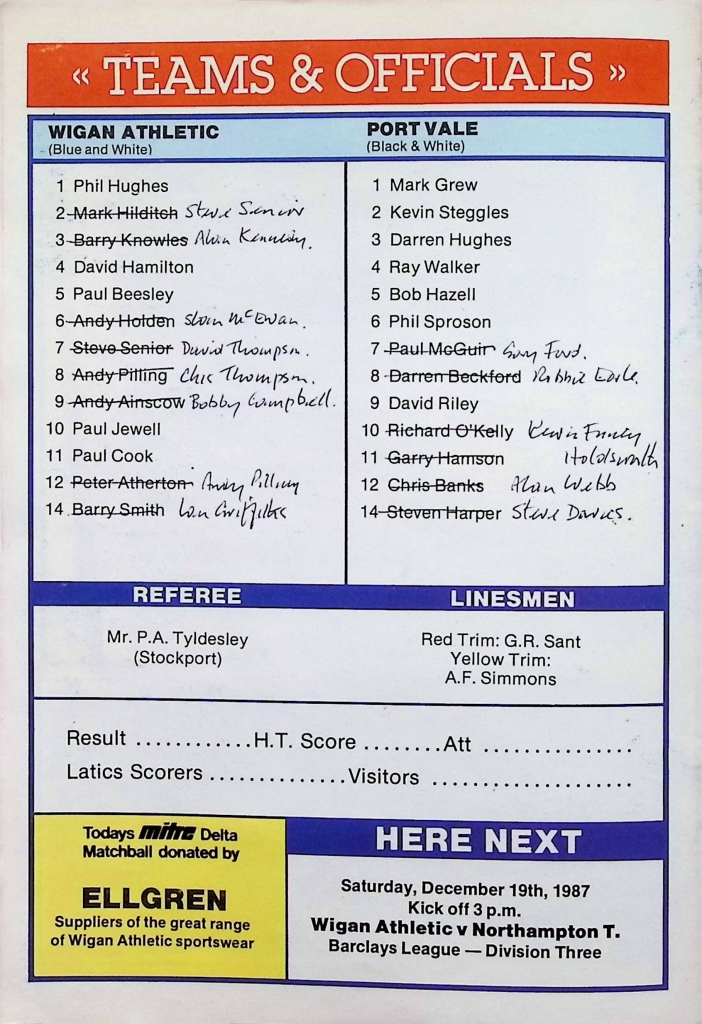 « TEAMS & OFFICIALS »
WIGAN ATHLETIC
(Blue and White)
1 Phil Hughes
2 Mark Hilditch Steve Senior
3 Barry Knowles Alan Kennedy.
4 David Hamilton
5 Paul Beesley
6 Andy Holden McEwan.
7 Steve Senior David Thompson.
8 Andy Pilling Chis Thompson.
9 Andy Ainscow Bobby Campbell.
10 Paul Jewell
11 Paul Cook
12 Peter Atherton Andy Pilling
14 Barry Smith Ian Griffiths
PORT VALE
(Black & White)
1 Mark Grew
2 Kevin Steggles
3 Darren Hughes
4 Ray Walker
5 Bob Hazell
6 Phil Sproson
7 Paul McGuir Gary Ford.
8 Darren Beckford Robbie Earle.
9 David Riley
10 Richard O'Kelly Kevin Finney
11 Garry Hamson Holdsworth
12 Chris Banks Alan Webb
14 Steven Harper Steve Davies.
REFEREE
Mr. P.A. Tyldesley
(Stockport)
LINESMEN
Red Trim: G.R. Sant
Yellow Trim:
A.F. Simmons
Result ............H.T. Score ........Att ...............
Latics Scorers ..............Visitors ....................
Todays mitre Delta
Matchball donated by
ELLGREN
Suppliers of the great range
of Wigan Athletic sportswear
HERE NEXT
Saturday, December 19th, 1987
Kick off 3 p.m.
Wigan Athletic v Northampton T.
Barclays League — Division Three